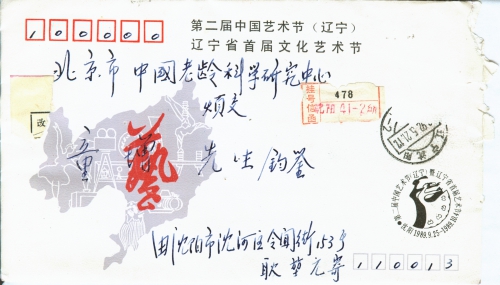 100000
第二届中国艺术节（辽宁）
辽宁省首届文化艺术节
北京市中国老龄科学研究中心
烦交
478
挂号信函
改
童 先生 钧鉴
藝
辽宁沈阳
第二届中国艺术节(辽宁)暨辽宁省首届艺术节
沈阳·1989.9.25-1989.10
由沈阳市沈河区令闻街153号
耿 寄
110013